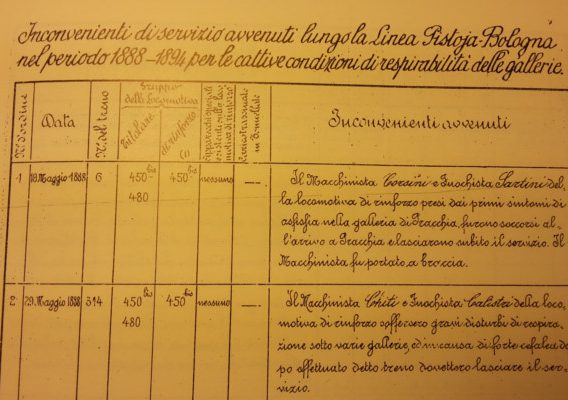 Inconvenienti di servizio avvenuti lungo la Linea Pistoja-Bologna
nel periodo 1888-1894 per le cattive condizioni di respirabilità delle gallerie.
N° d'ordine
Data
N° del treno
Gruppo
della Locomotiva
titolare
di rinforzo
(1)
Apparecchi speciali
esistenti sulla loco
motiva di rinforzo
Peso trainato
in tonnellate
Inconvenienti avvenuti
1 18 Maggio 1888 6 450 bis 450 bis nessuno —
480
Il Macchinista Corsini e Fuochista Sartini del-
la locomotiva di rinforzo presi dai primi sintomi di
asfisia nella galleria di Pracchia, furono soccorsi al-
l'arrivo a Pracchia e lasciarono subito il servizio. Il
Macchinista fu portato, a braccia.
2 29 Maggio 1888 314 450 bis 450 bis nessuno —
480
Il Macchinista Chiti e Fuochista Calistri della loco-
motiva di rinforzo soffersero gravi disturbi di respira-
zione sotto varie gallerie, ed in causa di forte cefalea do
po effettuato detto treno dovettero lasciare il ser-
vizio.